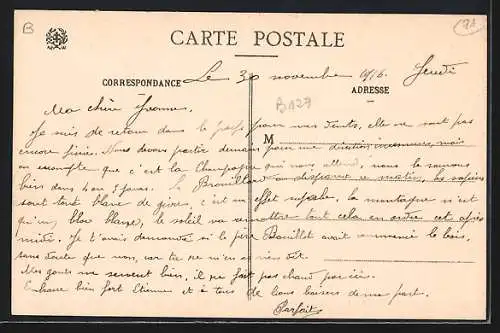 B
93
CARTE POSTALE
CORRESPONDANCE
Le 30 novembre 1916. Jeudi
ADRESSE
B129
Ma chère Yvonne,
Je suis de retour dans le pour mes dents, elles ne sont pas
M
encore finies. Nous devons partir demain pour une direction inconnue, mais
on compte que c'est la Champagne qui nous attend, nous le saurons
bien dans 4 ou 5 jours. Le Brouillard a disparu ce matin, les sapins
sont tout blanc de givre, c'est un effet superbe, la montagne n'est
qu'un bloc blanc, le soleil va remettre tout cela en ordre cet après
midi. Je t'avais demandé si le père Bouillet avait commencé le bois,
sans doute que non, car tu ne m'en as rien dit.
Mes gants me servent bien, il ne fait pas chaud par ici.
Embrasse bien fort Etienne et à tous de bons baisers de ma part.
Parfait